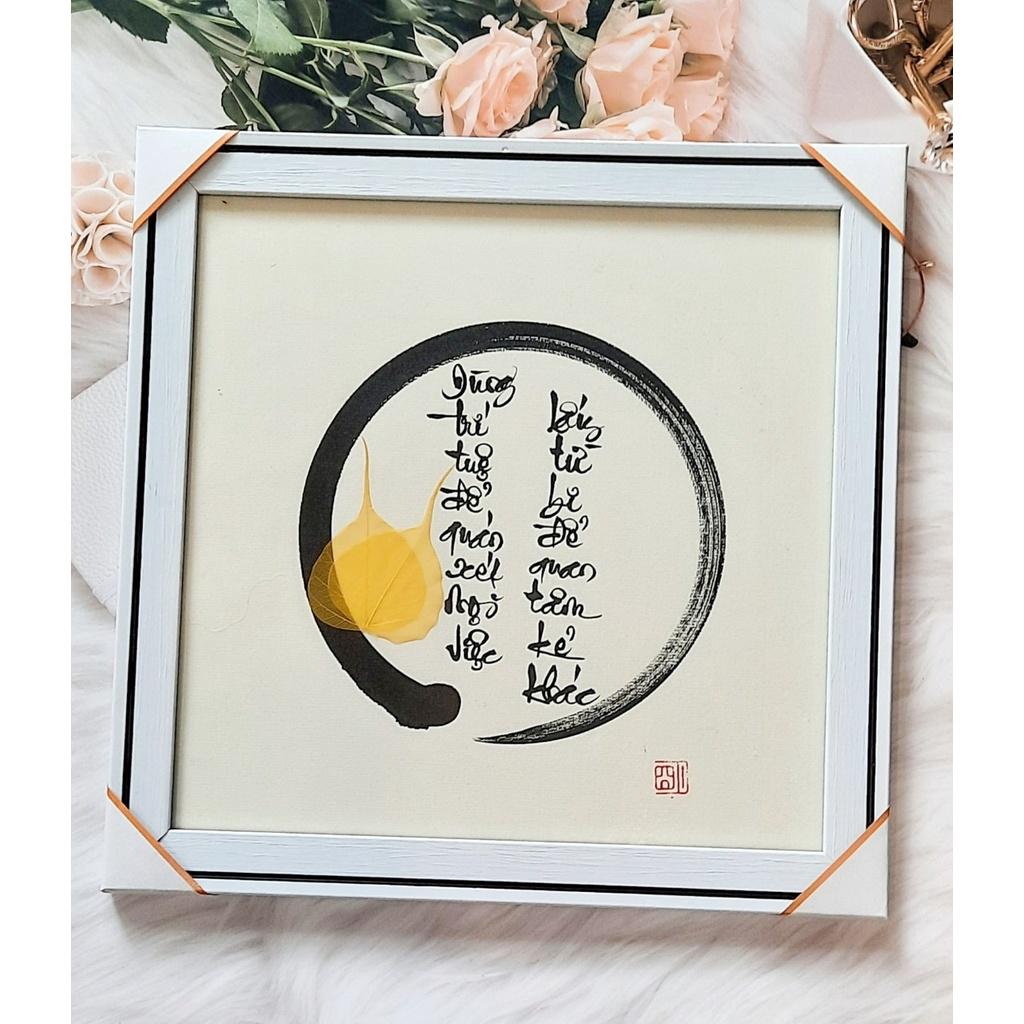 Dùng
trí
tuệ
để
quán
xét
mọi
việc
Lấy
từ
bi
để
quan
tâm
kẻ
khác